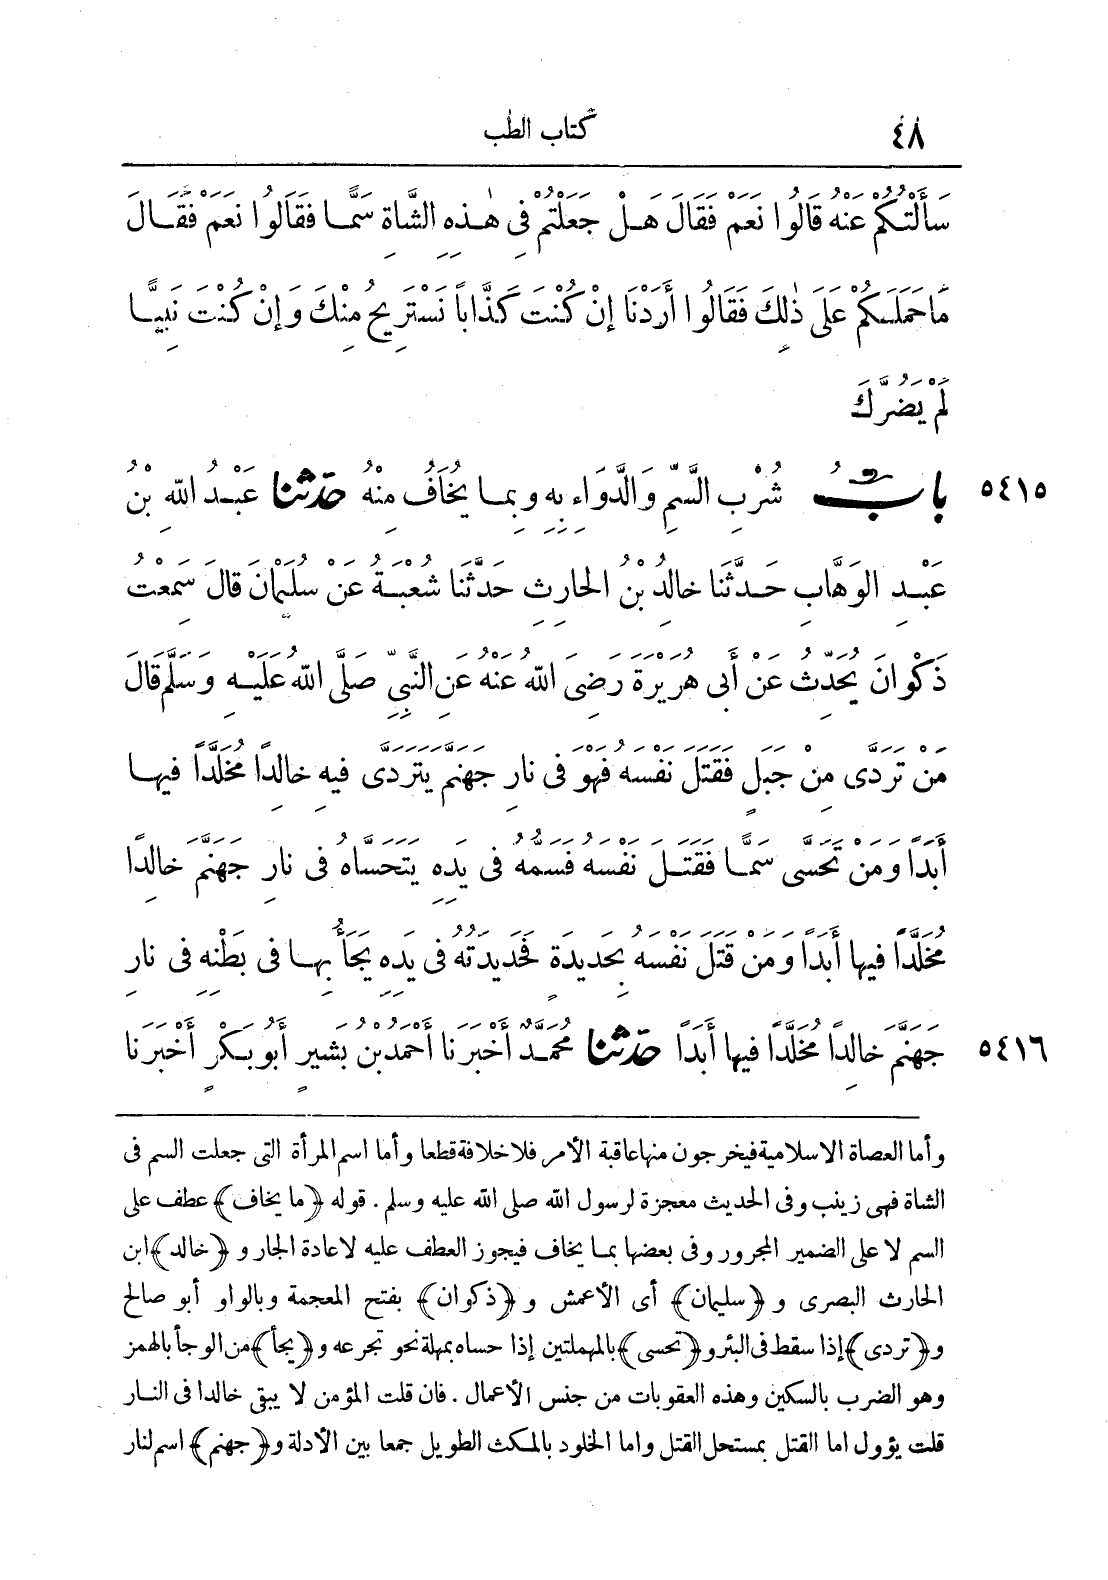 ٤٨
كتاب الطب
سَأَلْتُكُمْ عَنْهُ قَالُوا نَعَمْ فَقَالَ هَلْ جَعَلْتُمْ فِى هٰذِهِ الشَّاةِ سَمًّا فَقَالُوا نَعَمْ فَقَالَ
مَا حَمَلَكُمْ عَلَى ذٰلِكَ فَقَالُوا أَرَدْنَا إِنْ كُنْتَ كَذَّابًا نَسْتَرِيحُ مِنْكَ وَإِنْ كُنْتَ نَبِيًّا
لَمْ يَضُرَّكَ
٥٤١٥ بَابُ شُرْبِ السَّمِّ وَالدَّوَاءِ بِهِ وَبِمَا يُخَافُ مِنْهُ حَدَّثَنَا عَبْدُ اللهِ بْنُ
عَبْدِ الوَهَّابِ حَدَّثَنَا خَالِدُ بْنُ الحَارِثِ حَدَّثَنَا شُعْبَةُ عَنْ سُلَيْمَانَ قَالَ سَمِعْتُ
ذَكْوَانَ يُحَدِّثُ عَنْ أَبِى هُرَيْرَةَ رَضِىَ اللهُ عَنْهُ عَنِ النَّبِىِّ صَلَّى اللهُ عَلَيْهِ وَسَلَّمَ قَالَ
مَنْ تَرَدَّى مِنْ جَبَلٍ فَقَتَلَ نَفْسَهُ فَهُوَ فِى نَارِ جَهَنَّمَ يَتَرَدَّى فِيهِ خَالِدًا مُخَلَّدًا فِيهَا
أَبَدًا وَمَنْ تَحَسَّى سَمًّا فَقَتَلَ نَفْسَهُ فَسَمُّهُ فِى يَدِهِ يَتَحَسَّاهُ فِى نَارِ جَهَنَّمَ خَالِدًا
مُخَلَّدًا فِيهَا أَبَدًا وَمَنْ قَتَلَ نَفْسَهُ بِحَدِيدَةٍ فَحَدِيدَتُهُ فِى يَدِهِ يَجَأُ بِهَا فِى بَطْنِهِ فِى نَارِ
٥٤١٦ جَهَنَّمَ خَالِدًا مُخَلَّدًا فِيهَا أَبَدًا حَدَّثَنَا مُحَمَّدٌ أَخْبَرَنَا أَحْمَدُ بْنُ بَشِيرٍ أَبُو بَكْرٍ أَخْبَرَنَا
وأما العصاة الاسلامية فيخرجون منها عاقبة الأمر فلا خلافة قطعا وأما اسم المرأة التى جعلت السم فى
الشاة فهى زينب وفى الحديث معجزة لرسول الله صلى الله عليه وسلم . قوله ﴿ما يخاف﴾ عطف على
السم لا على الضمير المجرور وفى بعضها بما يخاف فيجوز العطف عليه لاعادة الجار و ﴿خالد﴾ ابن
الحارث البصرى و ﴿سليمان﴾ أى الأعمش و ﴿ذكوان﴾ بفتح المعجمة وبالواو أبو صالح
و﴿تردى﴾ إذا سقط فى البئر و﴿تحسى﴾ بالمهملتين إذا حساه بمهلة نحو تجرعه و﴿يجأ﴾ من الوجأ بالهمز
وهو الضرب بالسكين وهذه العقوبات من جنس الأعمال . فان قلت المؤمن لا يبقى خالدا فى النار
قلت يؤول اما القتل بمستحل القتل واما الخلود بالمكث الطويل جمعا بين الأدلة و﴿جهنم﴾ اسم لنار